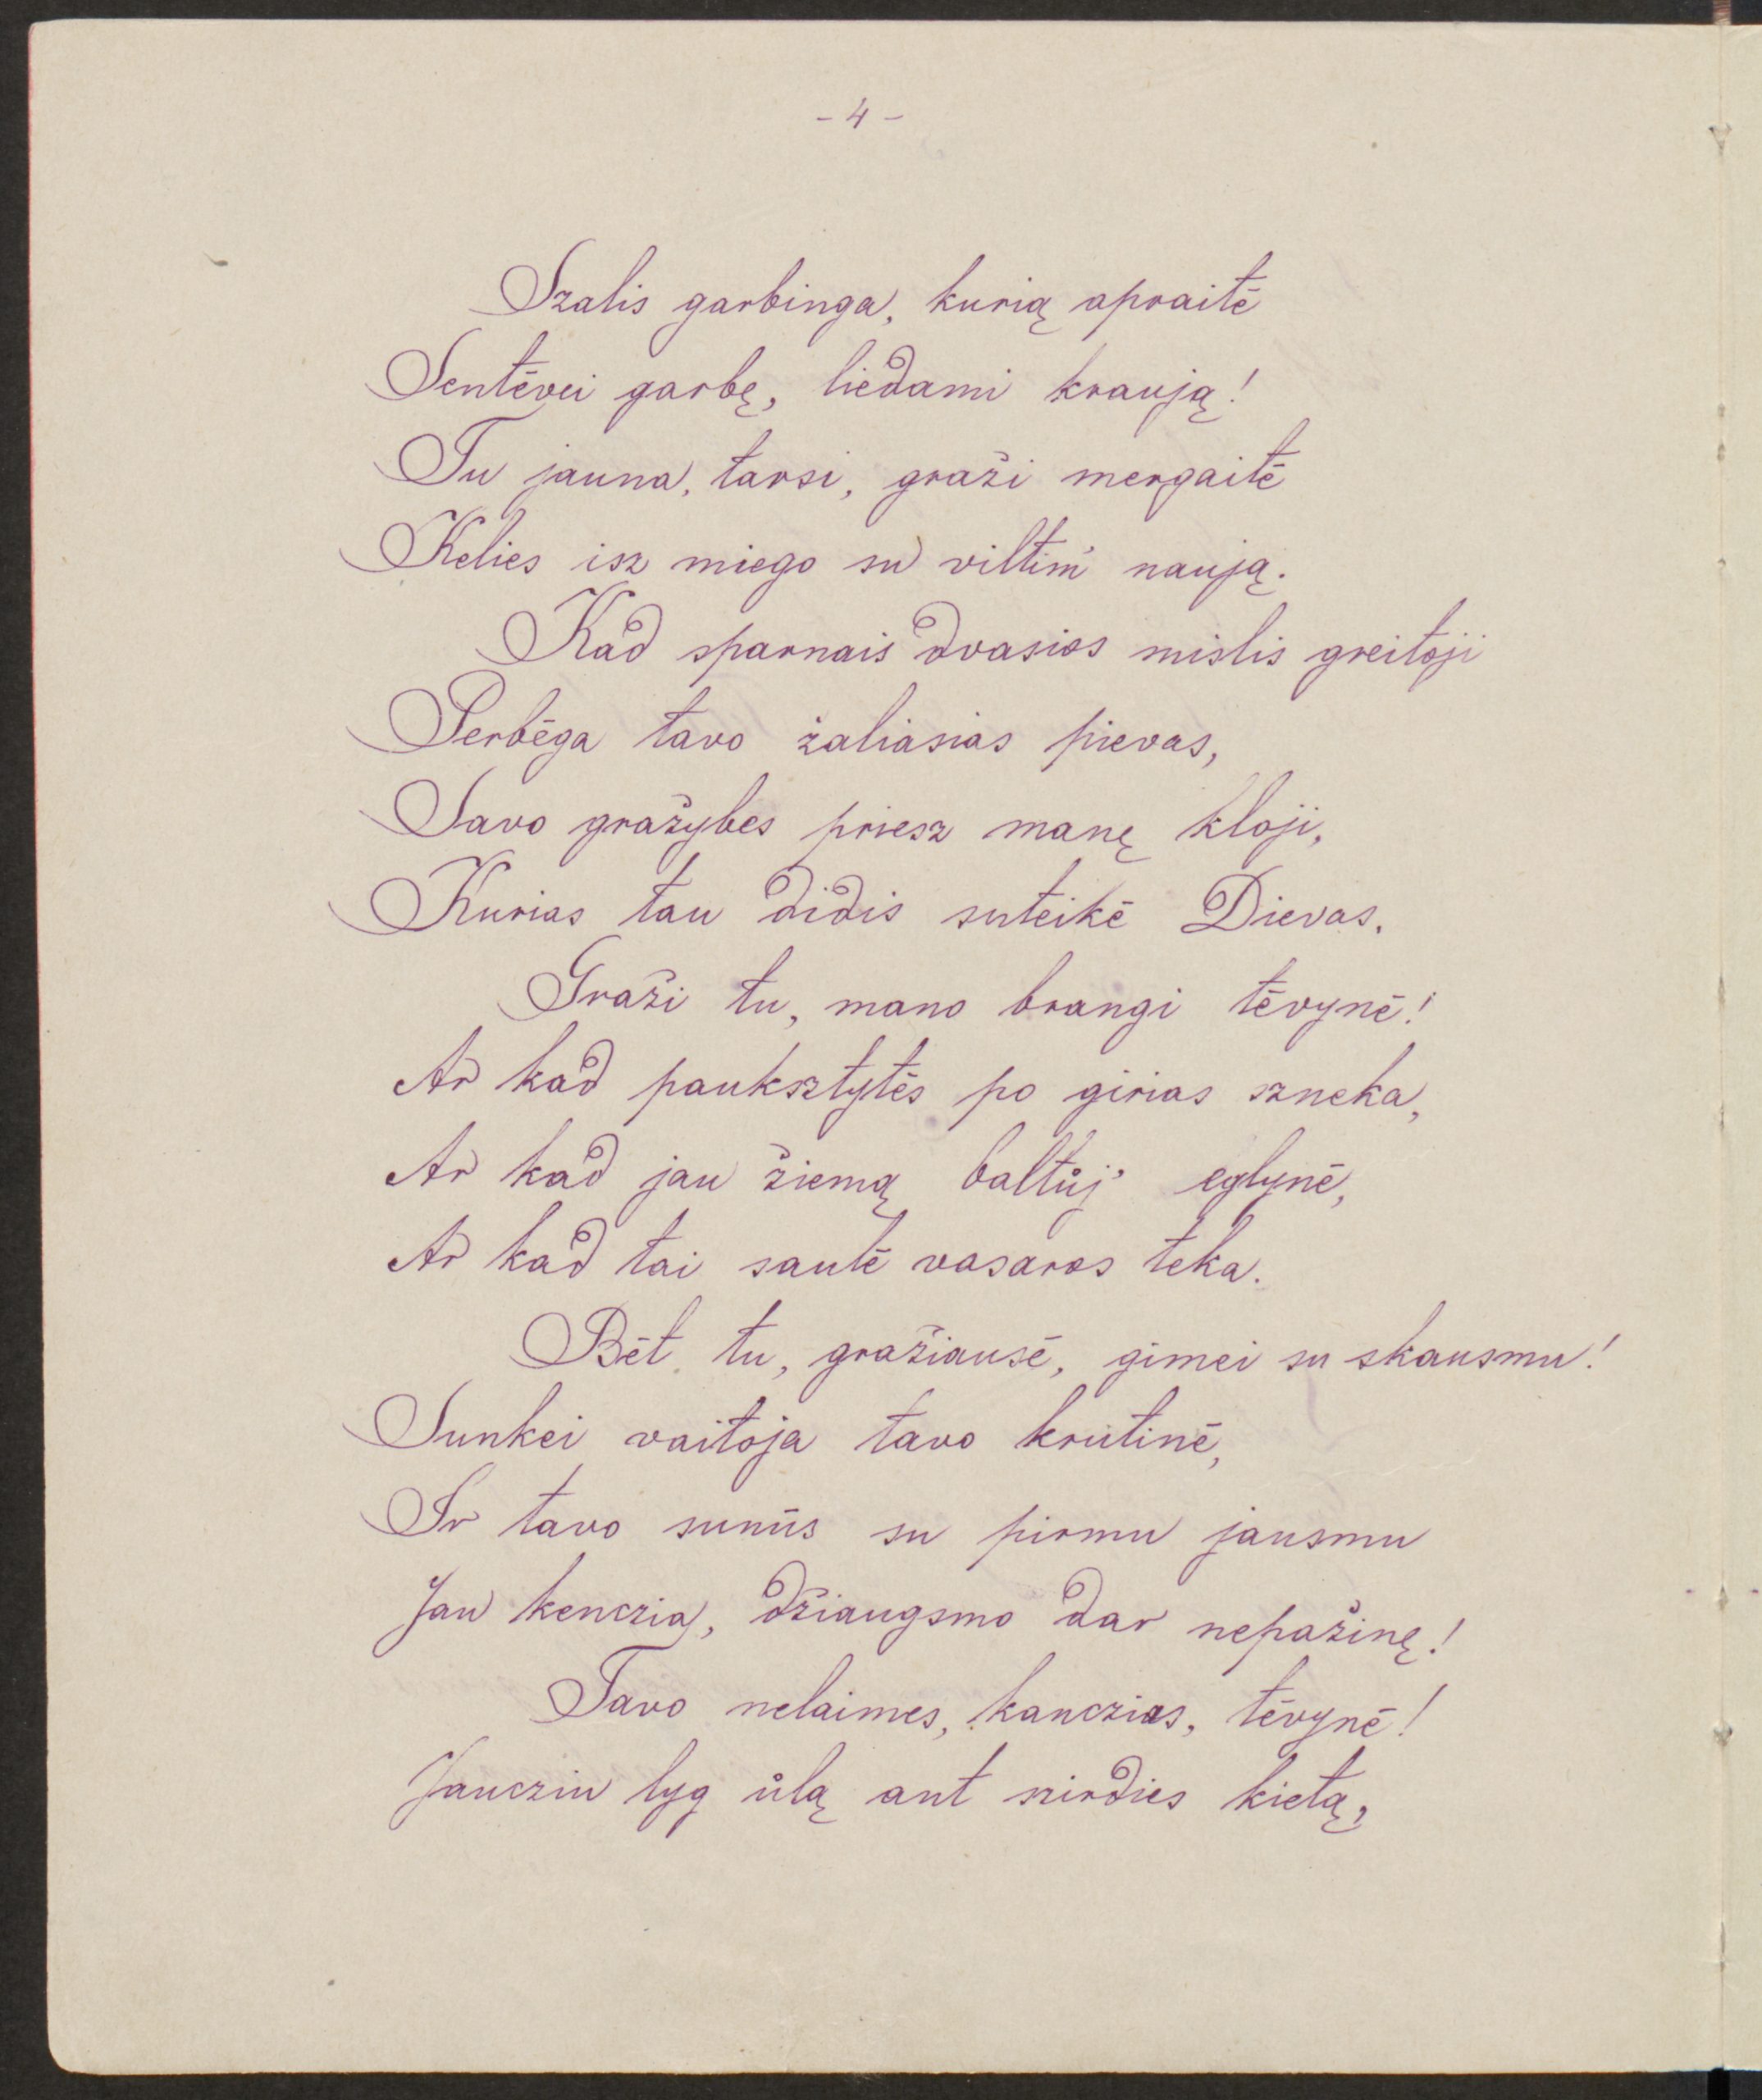 - 4 -
Szalis garbinga, kurią apraitė
Sentėvei garbę, liedami kraują!
Tu jauna, tarsi, graži mergaitė
Kelies isz miego su viltim' naują.
Kad sparnais dvasios mislis greitoji
Perbėga tavo žaliasias pievas,
Savo gražybes priesz manę kloji,
Kurias tau didis suteikė Dievas.
Graži tu, mano brangi tėvynė!
Ar kad pauksztytės po girias szneka,
Ar kad jau žiemą baltůj' eglynė,
Ar kad tai saulė vasaros teka.
Bėt tu, gražiausė, gimei su skausmu!
Sunkei vaitoja tavo krutinė,
Ir tavo sunūs su pirmu jausmu
Jau kenczia, džiaugsmo dar nepažinę!
Tavo nelaimes, kanczias, tėvynė!
Jaucziu lyg ůlą ant szirdies kietą,